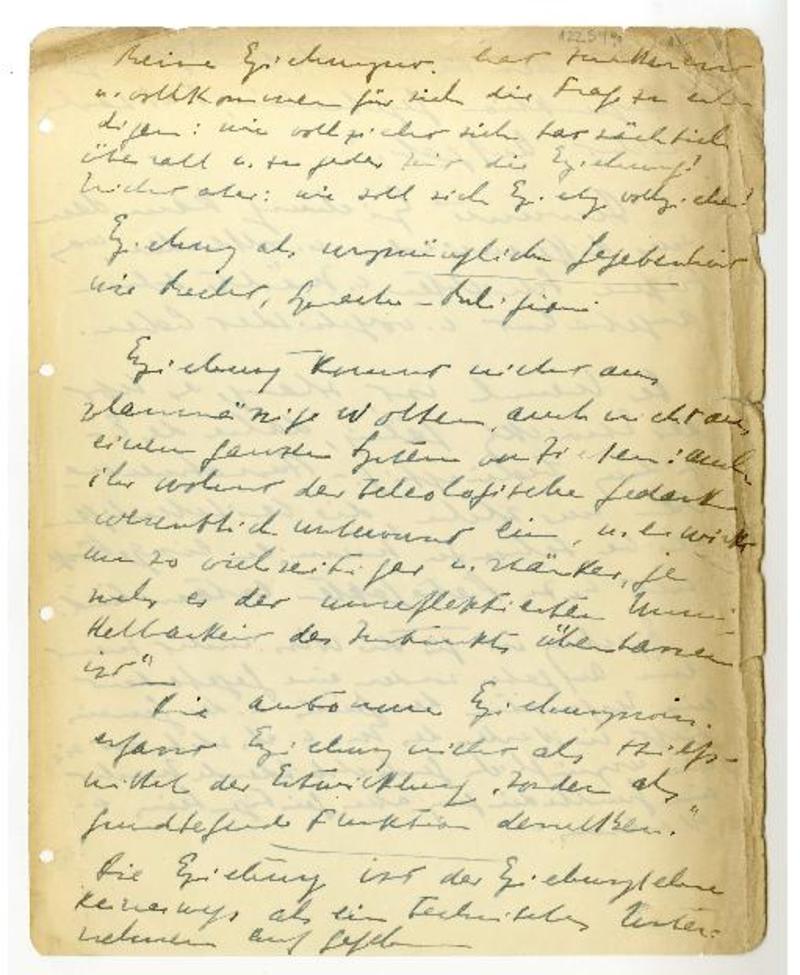 Reine Erziehungsw. hat zunächst nur
u. vollkommen für sich die Frage zu erle
digen: wie vollzieht sich tatsächlich
überall u. zu jeder Zeit die Erziehung?
Nicht aber: wie soll sich Erziehg vollziehen?
Erziehung als ursprüngliche Gegebenheit
wie Recht, Sprache – Religion
Erziehung kommt nicht aus
planmäsige Wollen, auch nicht aus
einem ganzen System von Zielen: auch
ihr wohnt der teleologische Gedanke
wesentlich unbewusst ein, u. er wirkt
um so vielseitiger u. stärker, je
mehr er der unreflektierten Unmi-
ttelbarkeit des Instinkts überlassen
ist"
Die autonome Erziehungswis.
erfasst Erziehung nicht als Hilfs-
mittel der Entwicklung, sondern als
grundlegende Funktion derselben."
Die Erziehung ist der Erziehungslehre
keineswegs als ein technisches Unter-
nehmen aufgegeben